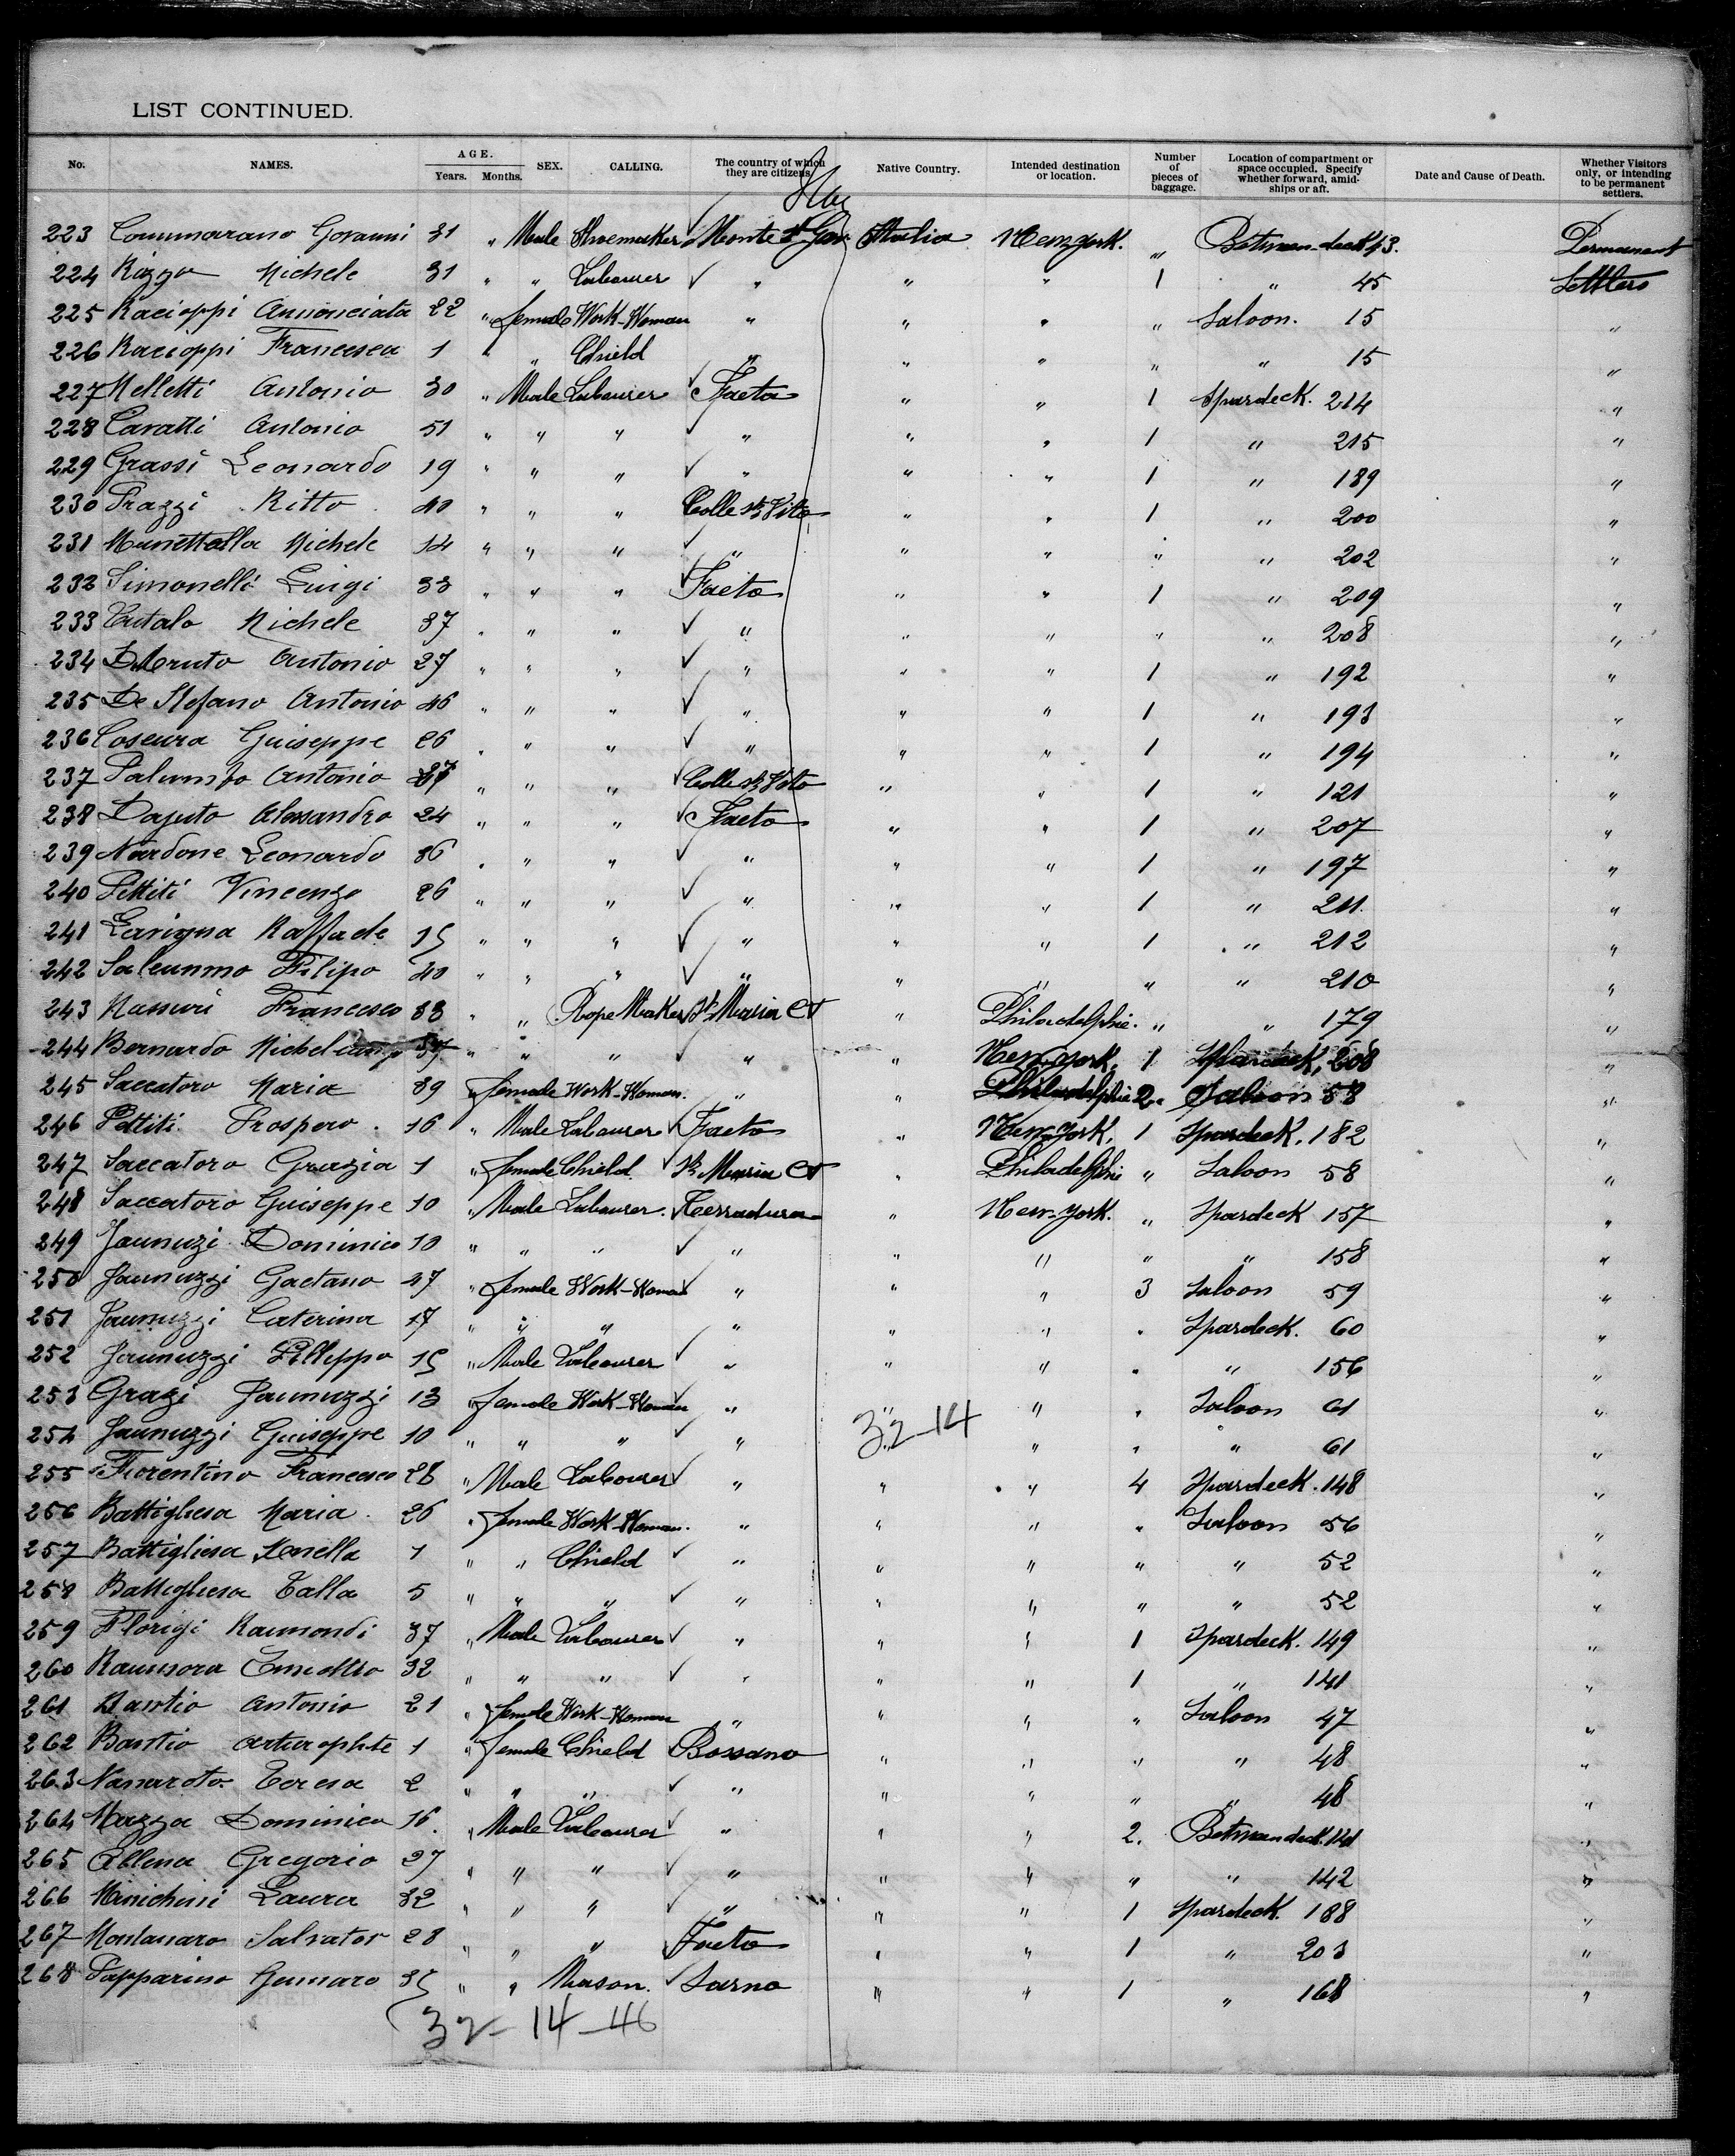 LIST CONTINUED.
No. NAMES. AGE. Years. Months. SEX. CALLING. The country of which they are citizens. Native Country. Intended destination or location. Number of pieces of baggage. Location of compartment or space occupied. Specify whether forward, amidships or aft. Date and Cause of Death. Whether Visitors only, or intending to be permanent settlers.
223 Cammarano Govanni 31 " Male Shoemaker Monte St Gov Italia New York. " Betweendeck 43. Permanent
224 Rizzo Michele 31 " " Labourer " " " 1 " 45 Settlers
225 Racioppi Annonciata 22 " female Work-Woman " " " " Saloon. 15 "
226 Racioppi Francesca 1 " " Chield " " " " " 15 "
227 Melletti Antonio 30 " Male Labourer Faeto " " 1 Spardeck. 214 "
228 Caratti Antonio 51 " " " " " " 1 " 215 "
229 Grassi Leonardo 19 " " " " " " 1 " 189 "
230 Prazzi Ritto 40 " " " Colle St Vito " " 1 " 200 "
231 Manettella Michele 14 " " " " " " " " 202 "
232 Simonelli Luigi 33 " " " Faeto " " 1 " 209 "
233 Tutalo Michele 37 " " " " " " " " 208 "
234 Antonio 27 " " " " " " 1 " 192 "
235 De Stefano Antonio 46 " " " " " " 1 " 193 "
236 Coscura Guiseppe 26 " " " " " " 1 " 194 "
237 Palumbo Antonio " " " Colle St Vito " " 1 " 121 "
238 Dajuto Alessandro 24 " " " Faeto " " 1 " 207 "
239 Nardone Leonardo 36 " " " " " " 1 " 197 "
240 Pittiti Vincenzo 26 " " " " " " 1 " 211. "
241 Lavigna Raffaele 35 " " " " " " 1 " 212 "
242 Salcummo Filipo 40 " " " " " " " " 210 "
243 Massuri Francesco 33 " " Rope Maker St Maria CV " Philadelphie. " " 179 "
244 Bernardo Michelangi 37 " " " " " New York, 1 Spardeck, 208 "
245 Saccatoro Maria 39 female Work-Woman. " " Philadelphie 2. Saloon 58 "
246 Pettiti Prospero. 16 " Male Labourer Faeto " New York, 1 Spardeck, 182 "
247 Saccatoro Grazia 1 " female Chield St Maria CV " Philadelphi " Saloon 58 "
248 Saccatoro Guiseppe 10 " Male Labourer. Terradura " New York. " Spardeck 157 "
249 Jaunuzi Dominico 10 " " " " " " " " 158 "
250 Jaunuzzi Gaetano 47 " female Work-Woman " " " 3 Saloon 59 "
251 Jaunuzzi Caterina 17 " " " " " " " Spardeck. 60 "
252 Jaunuzzi Filleppo 15 " Male Labourer " " " " " 156 "
253 Grazi Jaunuzzi 13 " female Work-Woman " " " " Saloon 61 "
32-14
254 Jaunuzzi Guiseppe 10 " " " " " " " " 61 "
255 Fiorentino Francesco 28 " Male Labourer " " " 4 Spardeck. 148 "
256 Battigliesa Maria. 26 " female Work-Woman. " " " " Saloon 56 "
257 Battigliesa 1 " " Chield " " " " " 52 "
258 Battigliesa Talla 5 " " " " " " " " 52 "
259 Florigi Raimondi 37 " Male Labourer " " " 1 Spardeck. 149 "
260 32 " " " " " " 1 " 141 "
261 Bantio Antonio 21 " female Work-Woman " " " " Saloon 47 "
262 Bantio 1 " female Chield Bossano " " " " 48 "
263 Nanaroto Teresa 2 " " " " " " " " 48 "
264 Mazza Dominico 16. " Male Labourer " " " 2. Betweendeck. 141 "
265 Allena Gregorio 27 " " " " " " " " 142 "
266 Minichini Laura 32 " " " " " " 1 Spardeck. 188 "
267 Montanaro Salvator 28 " " " Faeto " " 1 " 203 "
268 Papparino Gennaro 35 " " Mason. Sarno " " 1 " 168 "
32-14-46